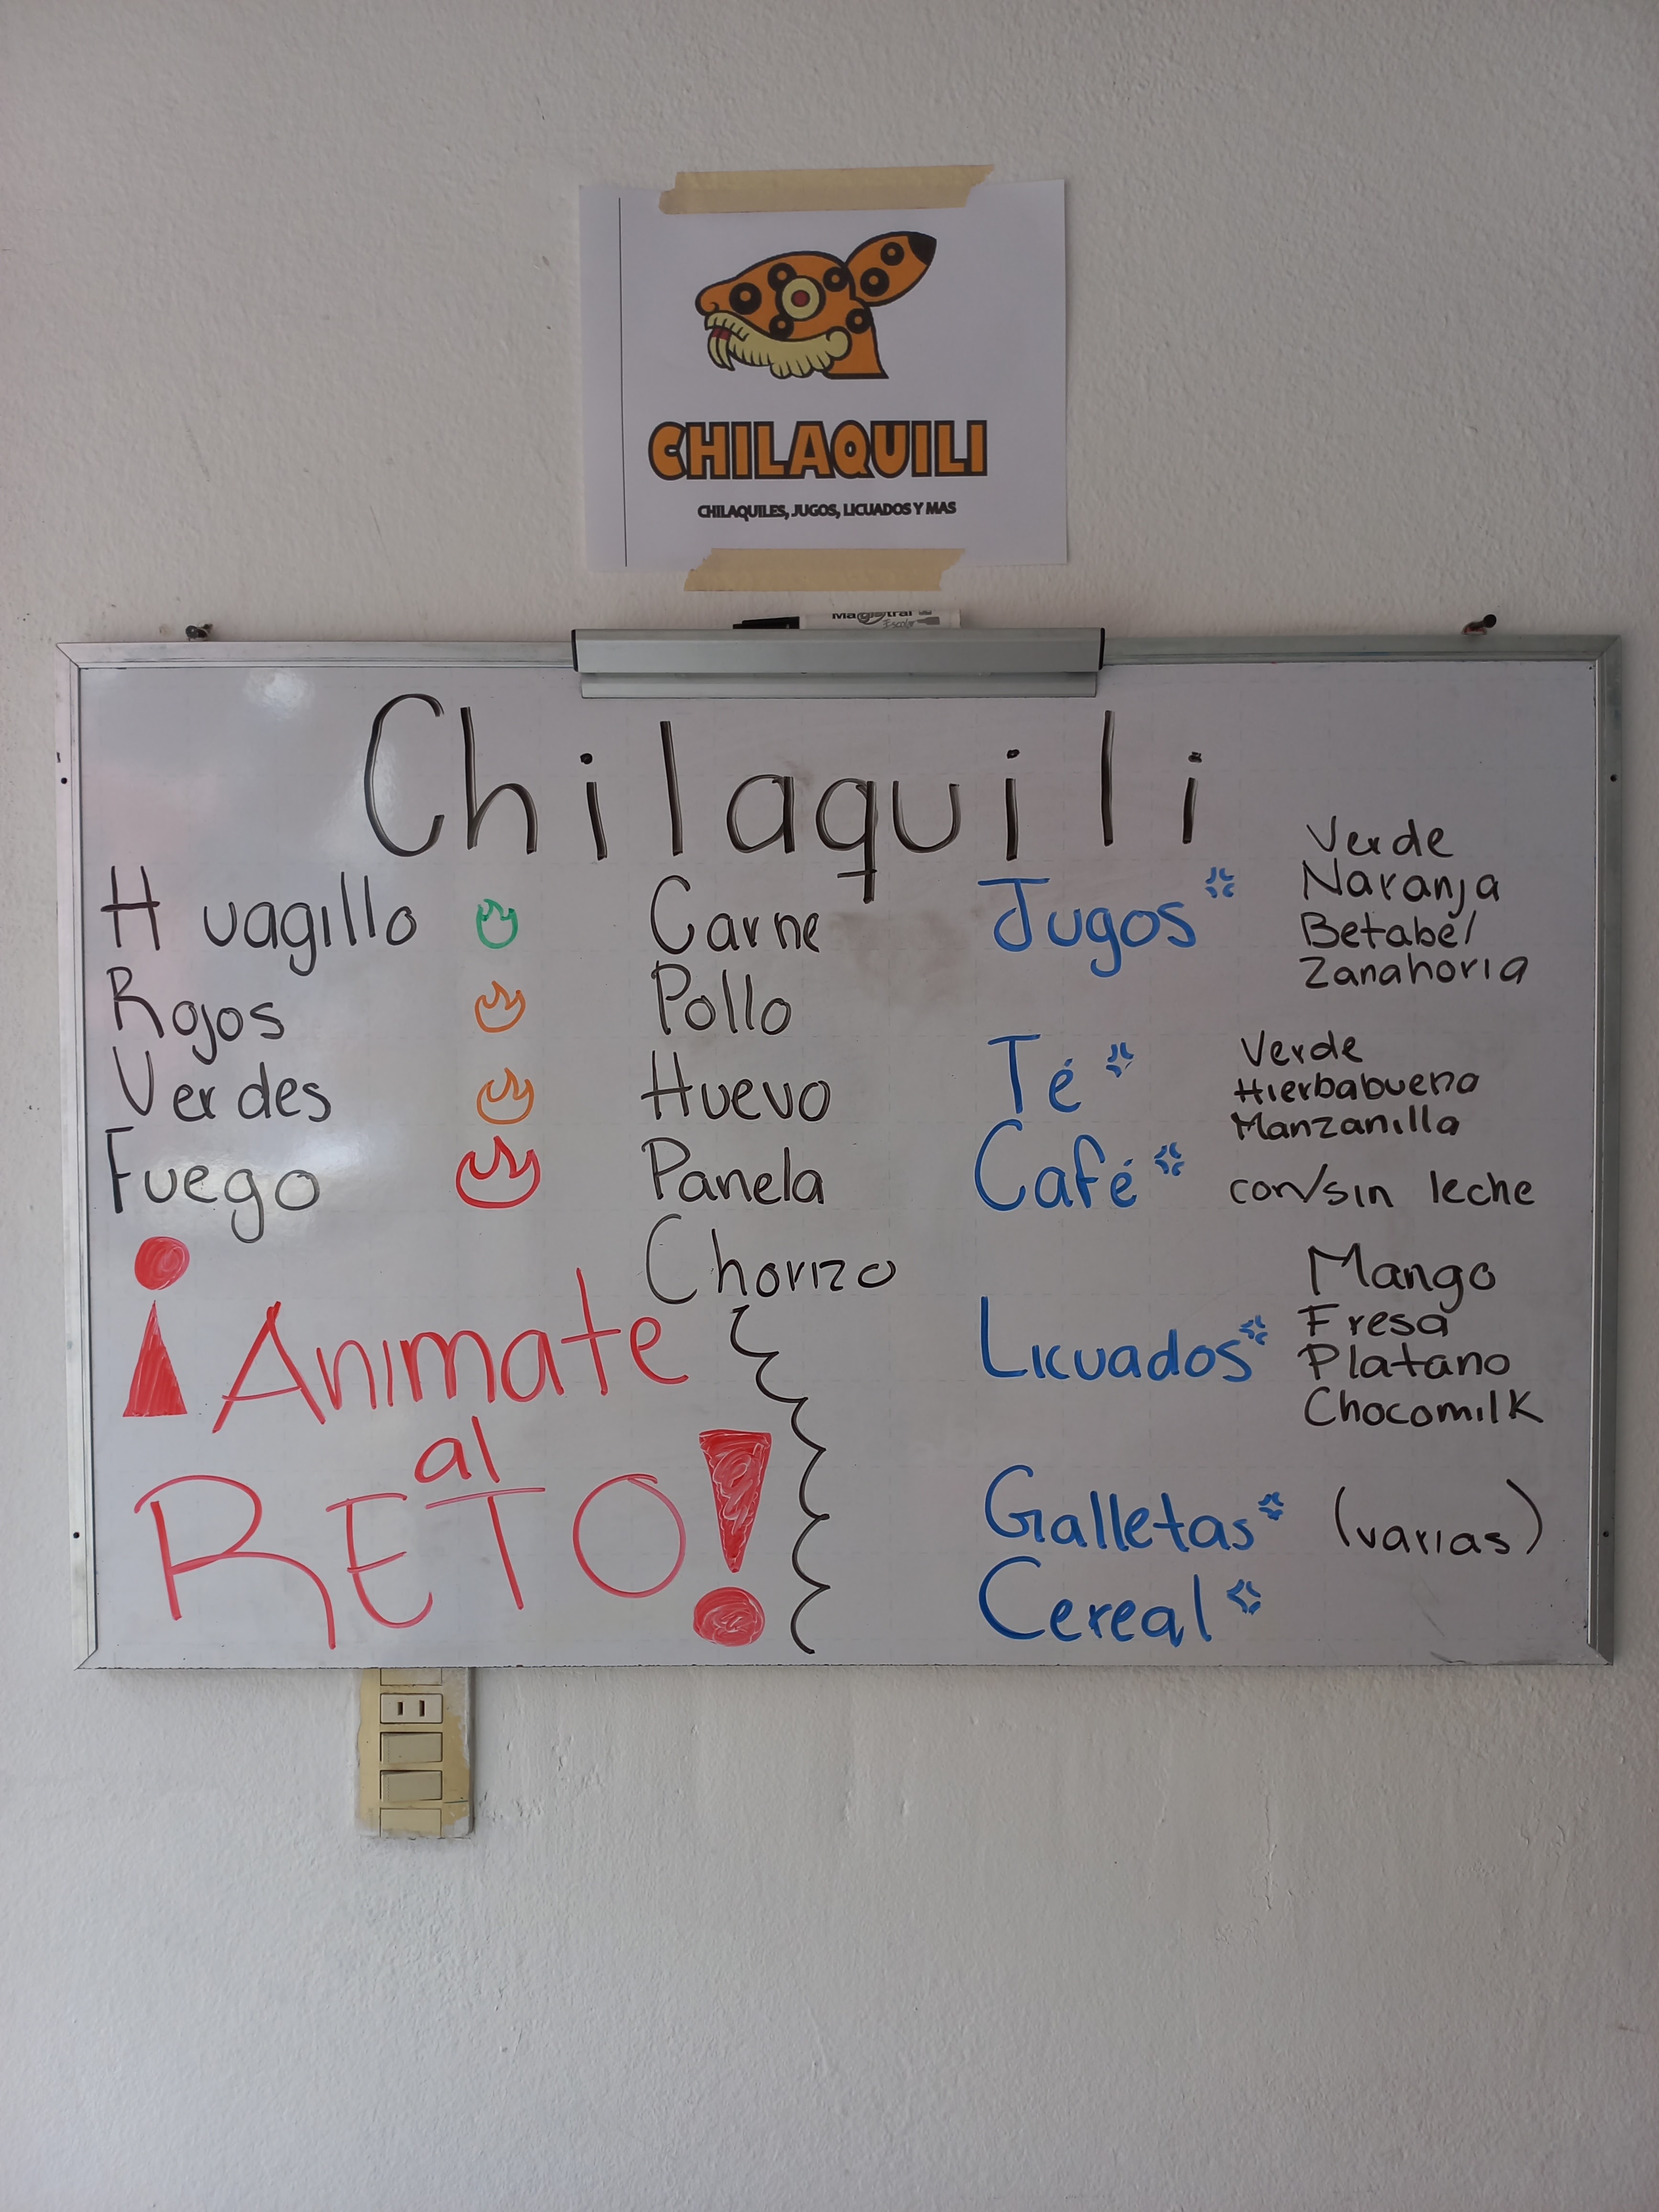 CHILAQUILI
CHILAQUILES, JUGOS, LICUADOS Y MAS
Magistral
Escolar
Chilaquili
Huagillo
Rojos
Verdes
Fuego
Carne
Pollo
Huevo
Panela
Chorizo
¡Animate
al
RETO!
Jugos
Verde
Naranja
Betabel
Zanahoria
Té
Verde
Hierbabuena
Manzanilla
Café con/sin leche
Licuados
Mango
Fresa
Platano
Chocomilk
Galletas (varias)
Cereal